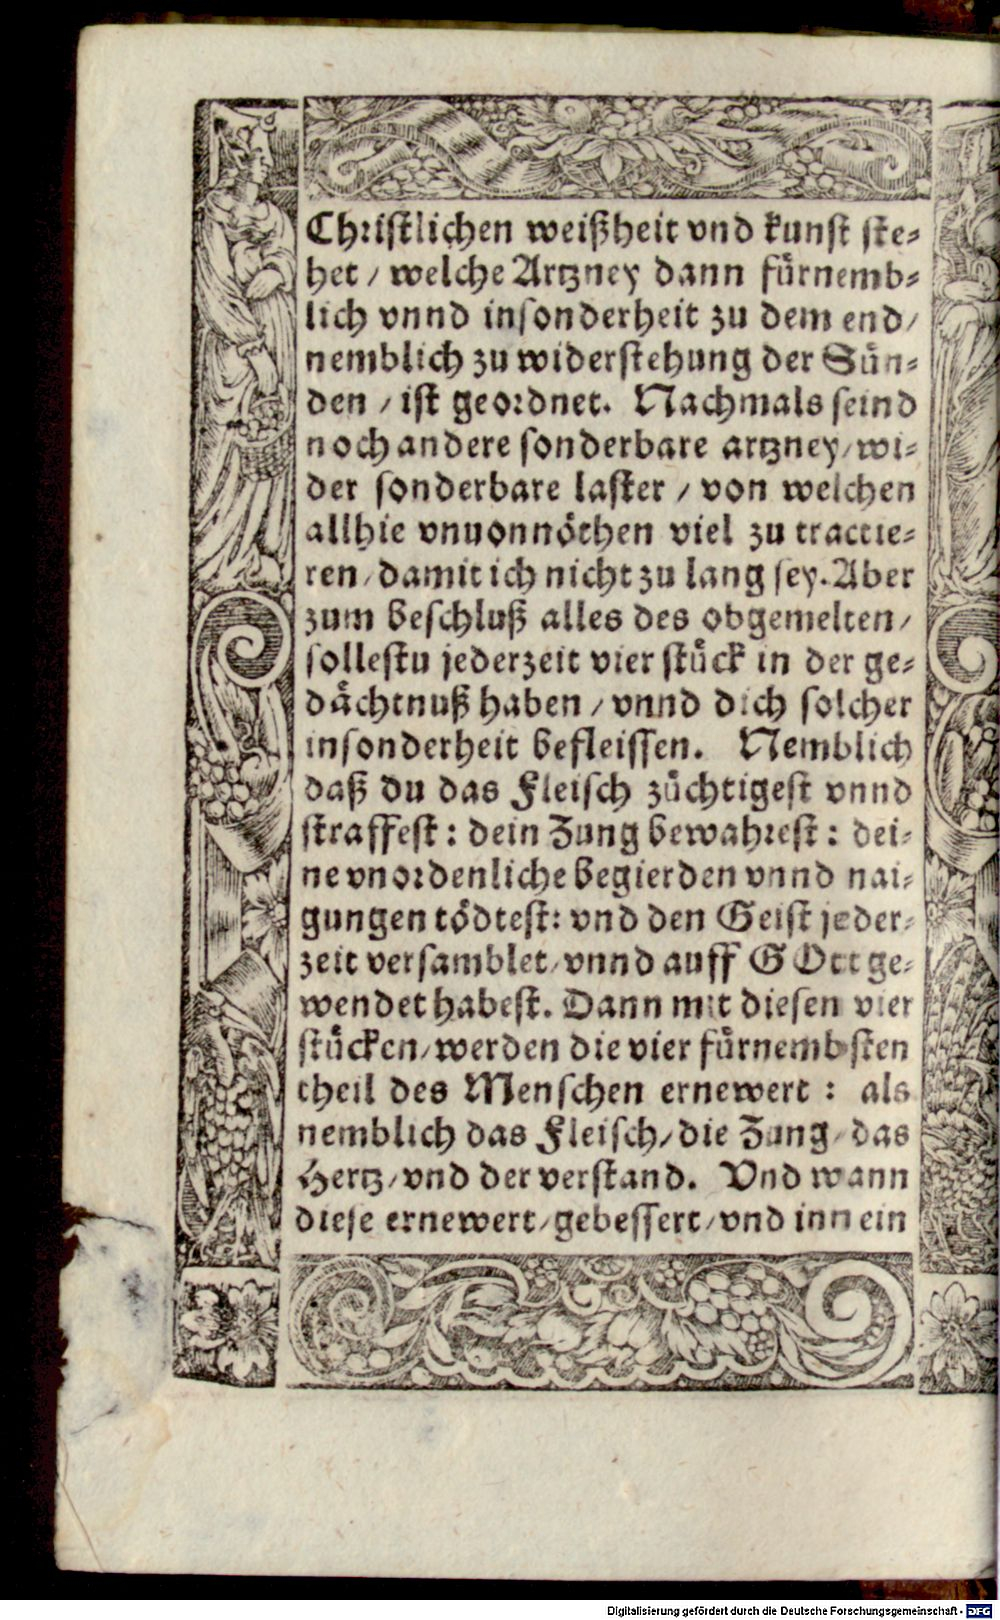 Christlichen weißheit vnd kunst ste-
het / welche Artzney dann fürnemb-
lich vnnd insonderheit zu dem end /
nemblich zu widerstehung der Sün-
den / ist geordnet. Nachmals seind
noch andere sonderbare artzney / wi-
der sonderbare laster / von welchen
allhie vnuonnöthen viel zu tractie-
ren / damit ich nicht zu lang sey. Aber
zum beschluß alles des obgemelten /
sollestu jederzeit vier stück in der ge-
dächtnuß haben / vnnd dich solcher
insonderheit befleissen. Nemblich
daß du das Fleisch züchtigest vnnd
straffest : dein Zung bewahrest : dei-
ne vnordenliche begierden vnnd nai-
gungen tödtest : vnd den Geist jeder-
zeit versamblet / vnnd auff GOtt ge-
wendet habest. Dann mit diesen vier
stücken / werden die vier fürnembsten
theil des Menschen ernewert : als
nemblich das Fleisch / die Zung / das
Hertz / vnd der verstand. Vnd wann
diese ernewert / gebessert / vnd inn ein
Digitalisierung gefördert durch die Deutsche Forschungsgemeinschaft - DFG